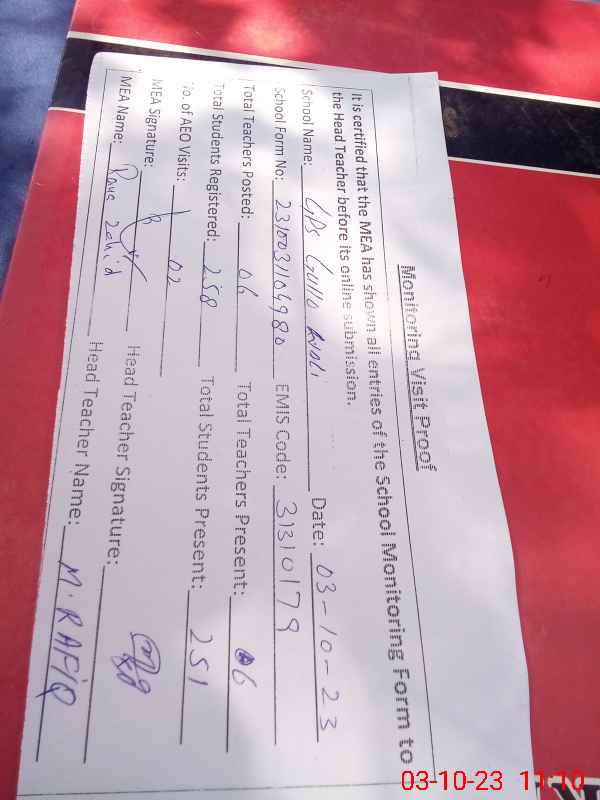 Monitoring Visit Proof
It is certified that the MEA has shown all entries of the School Monitoring Form to
the Head Teacher before its online submission.
School Name: GPS Gullo Date: 03-10-23
School Form No: EMIS Code: 31310179
Total Teachers Posted: 06 Total Teachers Present: 06
Total Students Registered: 258 Total Students Present: 251
No. of AEO Visits: 02
MEA Signature: Head Teacher Signature:
MEA Name: Rana Zahid Head Teacher Name: M. RAFIQ
03-10-23 11:10